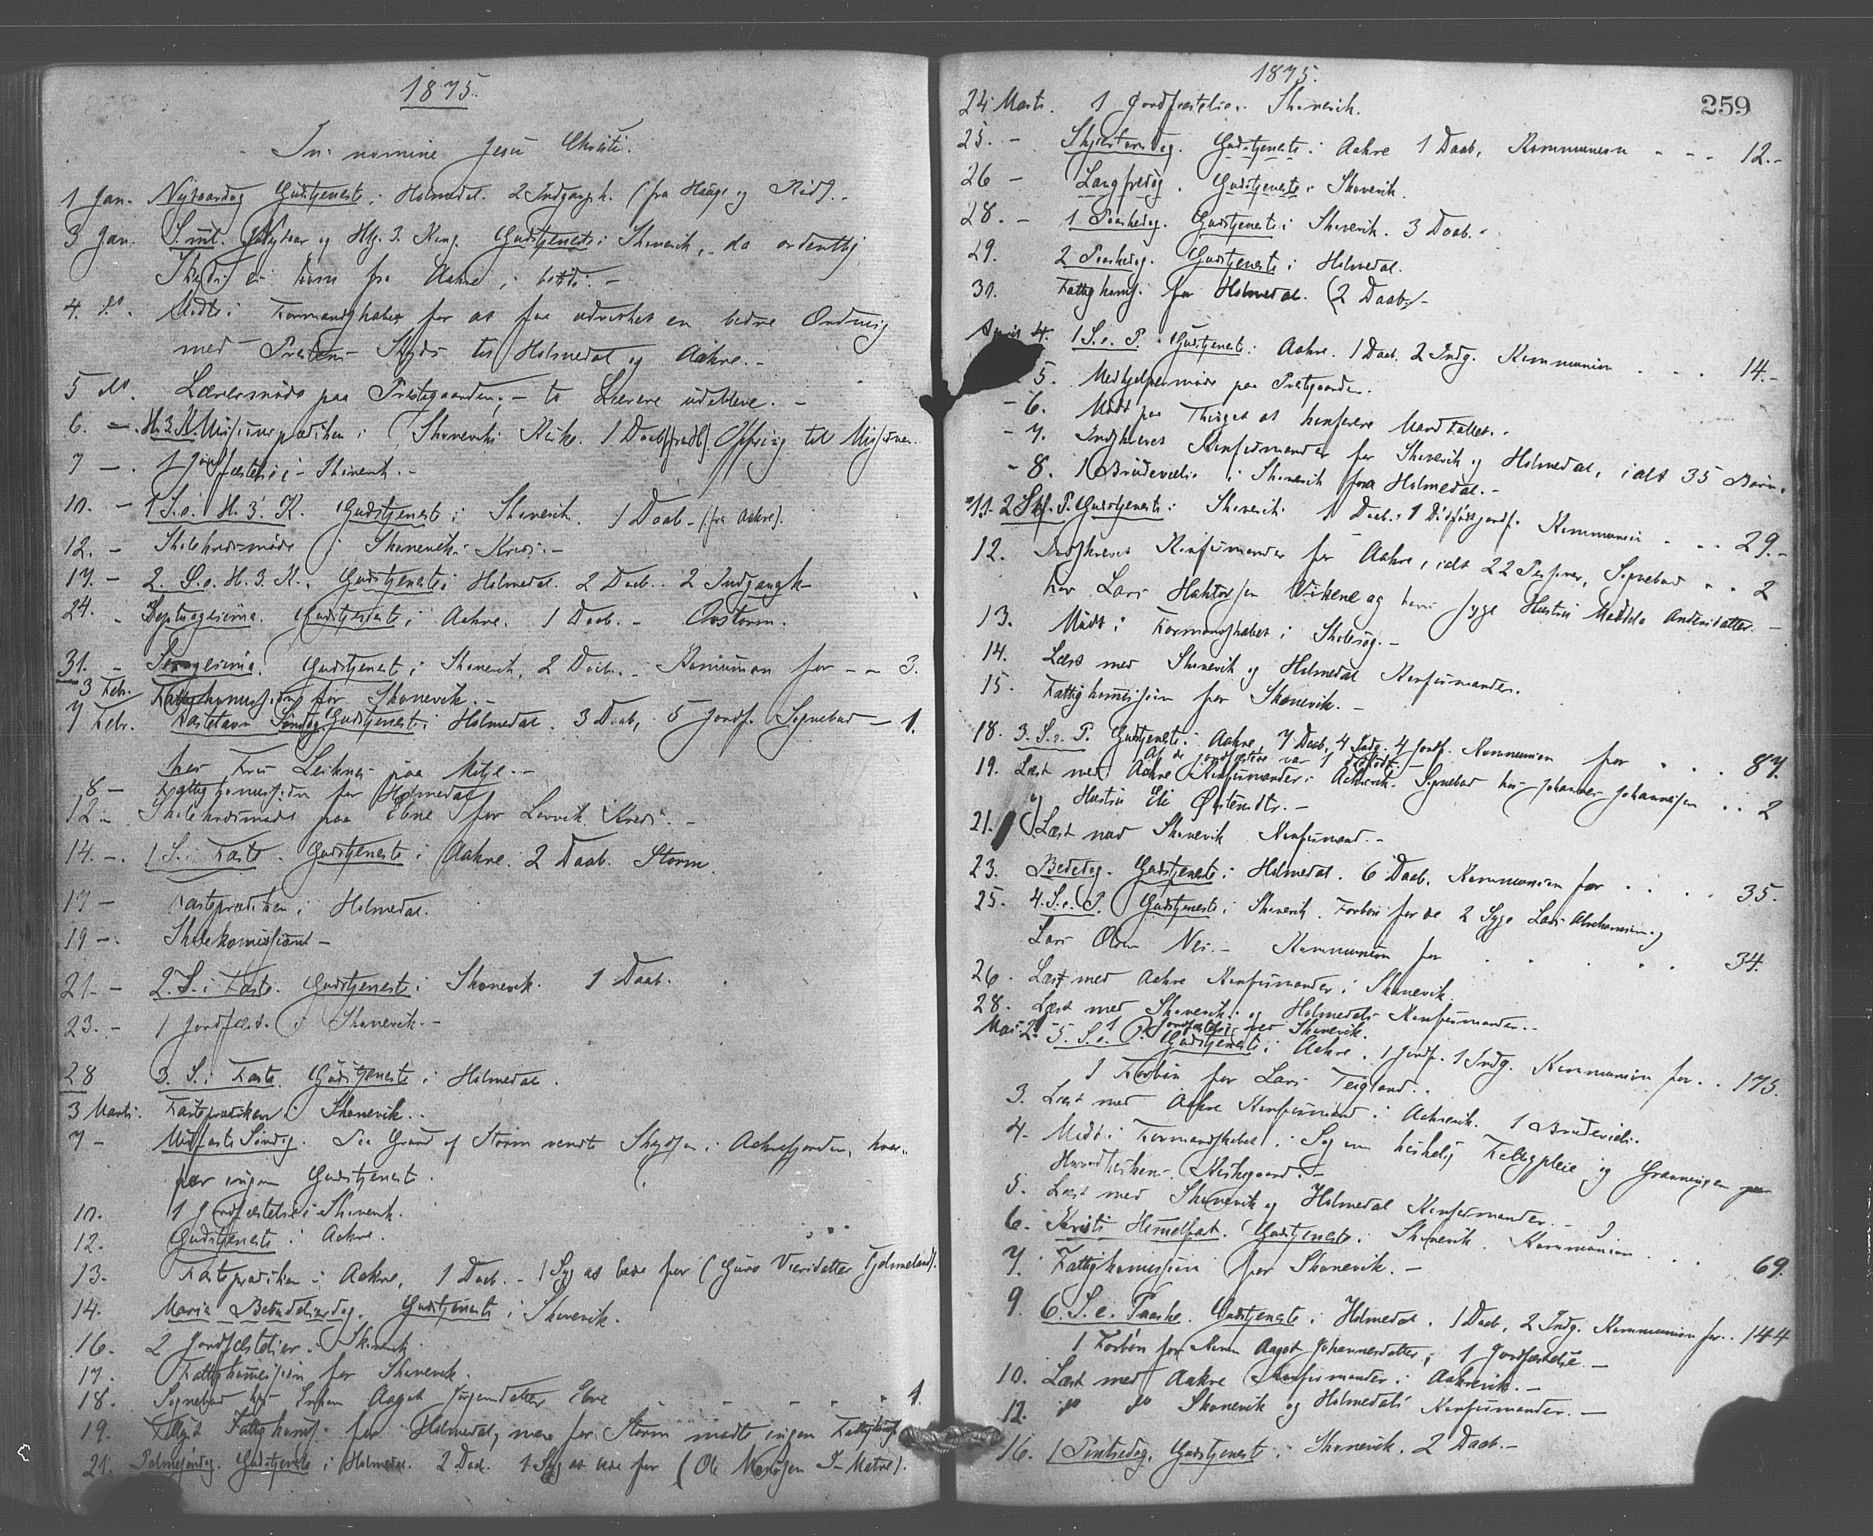 1875.
In nomine Jesu Christi.
1 Jan. Nytaarsdag Gudstjeneste i Holmedal. 2 Indgangsk. (fra Hauge og
3 Jan. S. ml. Nytaar og Hlg. 3. Kong. Gudstjeneste i Skonevik, da ordentlig
Skyds ei kom fra Aakre i
4. do. Mødte i Formandskabet for at faa udvirket en bedre Ordning
med Præstens Skyds til Holmedal og Aakre. -
5 do. Lærermøde paa Præstegaarden; - to Lærere udebleve. -
6. - H. 3. K. Missionsprædiken i Skonevik Kirke. 1 Daab Offring til Missionen.
7 - 1 Jordfæstelse i Skonevik. -
10. - 1 S. e. H. 3. K. Gudstjeneste i Skonevik. 1 Daab - (fra Aakre).
12. - Skolekredsmøde i Skonevik Kreds. -
17. - 2. S. e. H. 3. K. Gudstjeneste i Holmedal. 2 Daab. 2 Indgangsk-
24. - Septuagesima. Gudstjeneste i Aakre. 1 Daab. - Ovstorm.
31. - Sexagesima. Gudstjeneste i Skonevik, 2 Daab. - Kommunion for - - 3.
3 Febr. Fattigkommission for Skonevik. -
7 Febr. Fastelavn Søndag Gudstjeneste i Holmedal. 3 Daab, 5 Jordf. Sognebud - 1.
hos Fru
8 - Fattigkommission for Holmedal
12 - Skolekredsmøde paa Ebne for Kreds. -
14. - 1 S. i Faste. Gudstjeneste i Aakre. 2 Daab. Storm.
17 - Fasteprædiken i Holmedal.
19 - Skolekomission -
21. - 2. S. i Faste. Gudstjeneste i Skonevik. 1 Daab.
23. - 1 Jordfæst. i Skonevik. -
28 3. S. i Faste. Gudstjeneste i Holmedal.
3 Marts. Fasteprædiken i Skonevik.
7 - Midfaste Søndag. Paa Grund af Storm vendt Skydsen i Aakrefjorden, hvor-
for ingen Gudstjeneste.
10. 1 Jordfæstelse i Skonevik.
12. Gudstjeneste i Aakre.
13. Fasteprædiken i Aakre, 1 Daab. - 1 Syg at bede for (Guro Tjelmeland).
14. Maria Bebudelsesdag. Gudstjeneste i Skonevik.
16. 2 Jordfæstelser. Skonevik.
17. Fattigkommission for Skonevik.
18. Sognebud hos Enken Aagot Jørgendatter Ebne 1.
19. Fattigkomis. for Holmedal, men for Storm mødte ingen
21. Palmesøndag. Gudstjeneste i Holmedal. 2 Daab. 1 Syg at bede for (Ole Matre).
1875.
259
24 Marts. 1 Jordfæstelse. Skonevik.
25. - Skjærtorsdag. Gudstjeneste i Aakre 1 Daab, Kommunion - - - 12. -
26 - Langfredag. Gudstjeneste i Skonevik.
28. - 1 Paaskedag. Gudstjeneste i Skonevik. 3 Daab. -
29. 2 Paaskedag. Gudstjeneste i Holmedal.
30. Fattigkomis. for Holmedal. (2 Daab) -
April 4. 1 S. e. P. Gudstjeneste i Aakre. 1 Daab. 2 Indg. Kommunion . . . 14. -
- 5. Medhjelpermøde paa Præstgaarden.
- 6. Mødt paa Thinget at konferere Mandtallet. -
- 7. Indskrevet Konfirmander for Skonevik og Holmedal, ialt 35 Børn.
- 8. 1 Brudevielse i Skonevik fra Holmedal. -
11. 2 S. e. P. Gudstjeneste i Skonevik 1 Daab. 1 Kommunion . . . 29. -
12. Indskrevet Konfirmander for Aakre, ialt 22 Personer, Sognebud . . 2
hos Lars Vikene og hans syge Hustru Andersdatter. -
13. Mødt i Formandskabet i Skolesag. -
14. Læst med Skonevik og Holmedal Konfirmander.
15. Fattigkomission for Skonevik. -
18. 3. S. e. P. Gudstjeneste i Aakre, 7 Daab, 4 Indg. 4 Jordf. Kommunion for . . . 87.
Af de jordfæstede var 1
19. Læst med Aakre Konfirmander i Aakrevik. Sognebud hos Johannes Johannesen . . 2
og Hustru Eli
21. Læst med Skonevik Konfirmand. -
23. Bededag. Gudstjeneste i Holmedal. 6 Daab. Kommunion for . . . . 35.
25. 4. S. e. P. Gudstjeneste i Skonevik. Forbøn for de 2 Syge Lars og
Lars Olsen Nes. - Kommunion for . . . . 34.
26. Læst med Aakre Konfirmander i Skonevik.
28. Læst med Skonevik og Holmedals Konfirmander. -
1 Jordfæstelse ved Skonevik.
Mai 2. - 5. S. e. P. Gudstjeneste i Aakre. 1 Jordf. 1 Indg. Kommunion for . . 175.
1 Forbøn for Lars Teigland.
3. Læst med Aakre Konfirmand. i Aakrevik. 1 Brudevielse.
4. Mødt i Formandskabet i Sag om kirkelig Fattigpleie og Grændsen paa
Hovedkirkens Kirkegaard. -
5. Læst med Skonevik og Holmedal Konfirmander. -
6. Kristi Himmelfart. Gudstjeneste i Skonevik. Kommunion . . 69.
7. Fattigkomission for Skonevik. -
9. 6. S. e. Paaske. Gudstjeneste i Holmedal. 1 Daab, 2 Indg. Kommunion for . . 144
1 Forbøn for Aagot Johannesdatter, 1 Jordfæstelse -
10. Læst med Aakre Konfirmander i Aakrevik. -
12. do do Skonevik og Holmedals Konfirmander. -
16. 1 Pintsedag. Gudstjeneste i Skonevik. 2 Daab. -